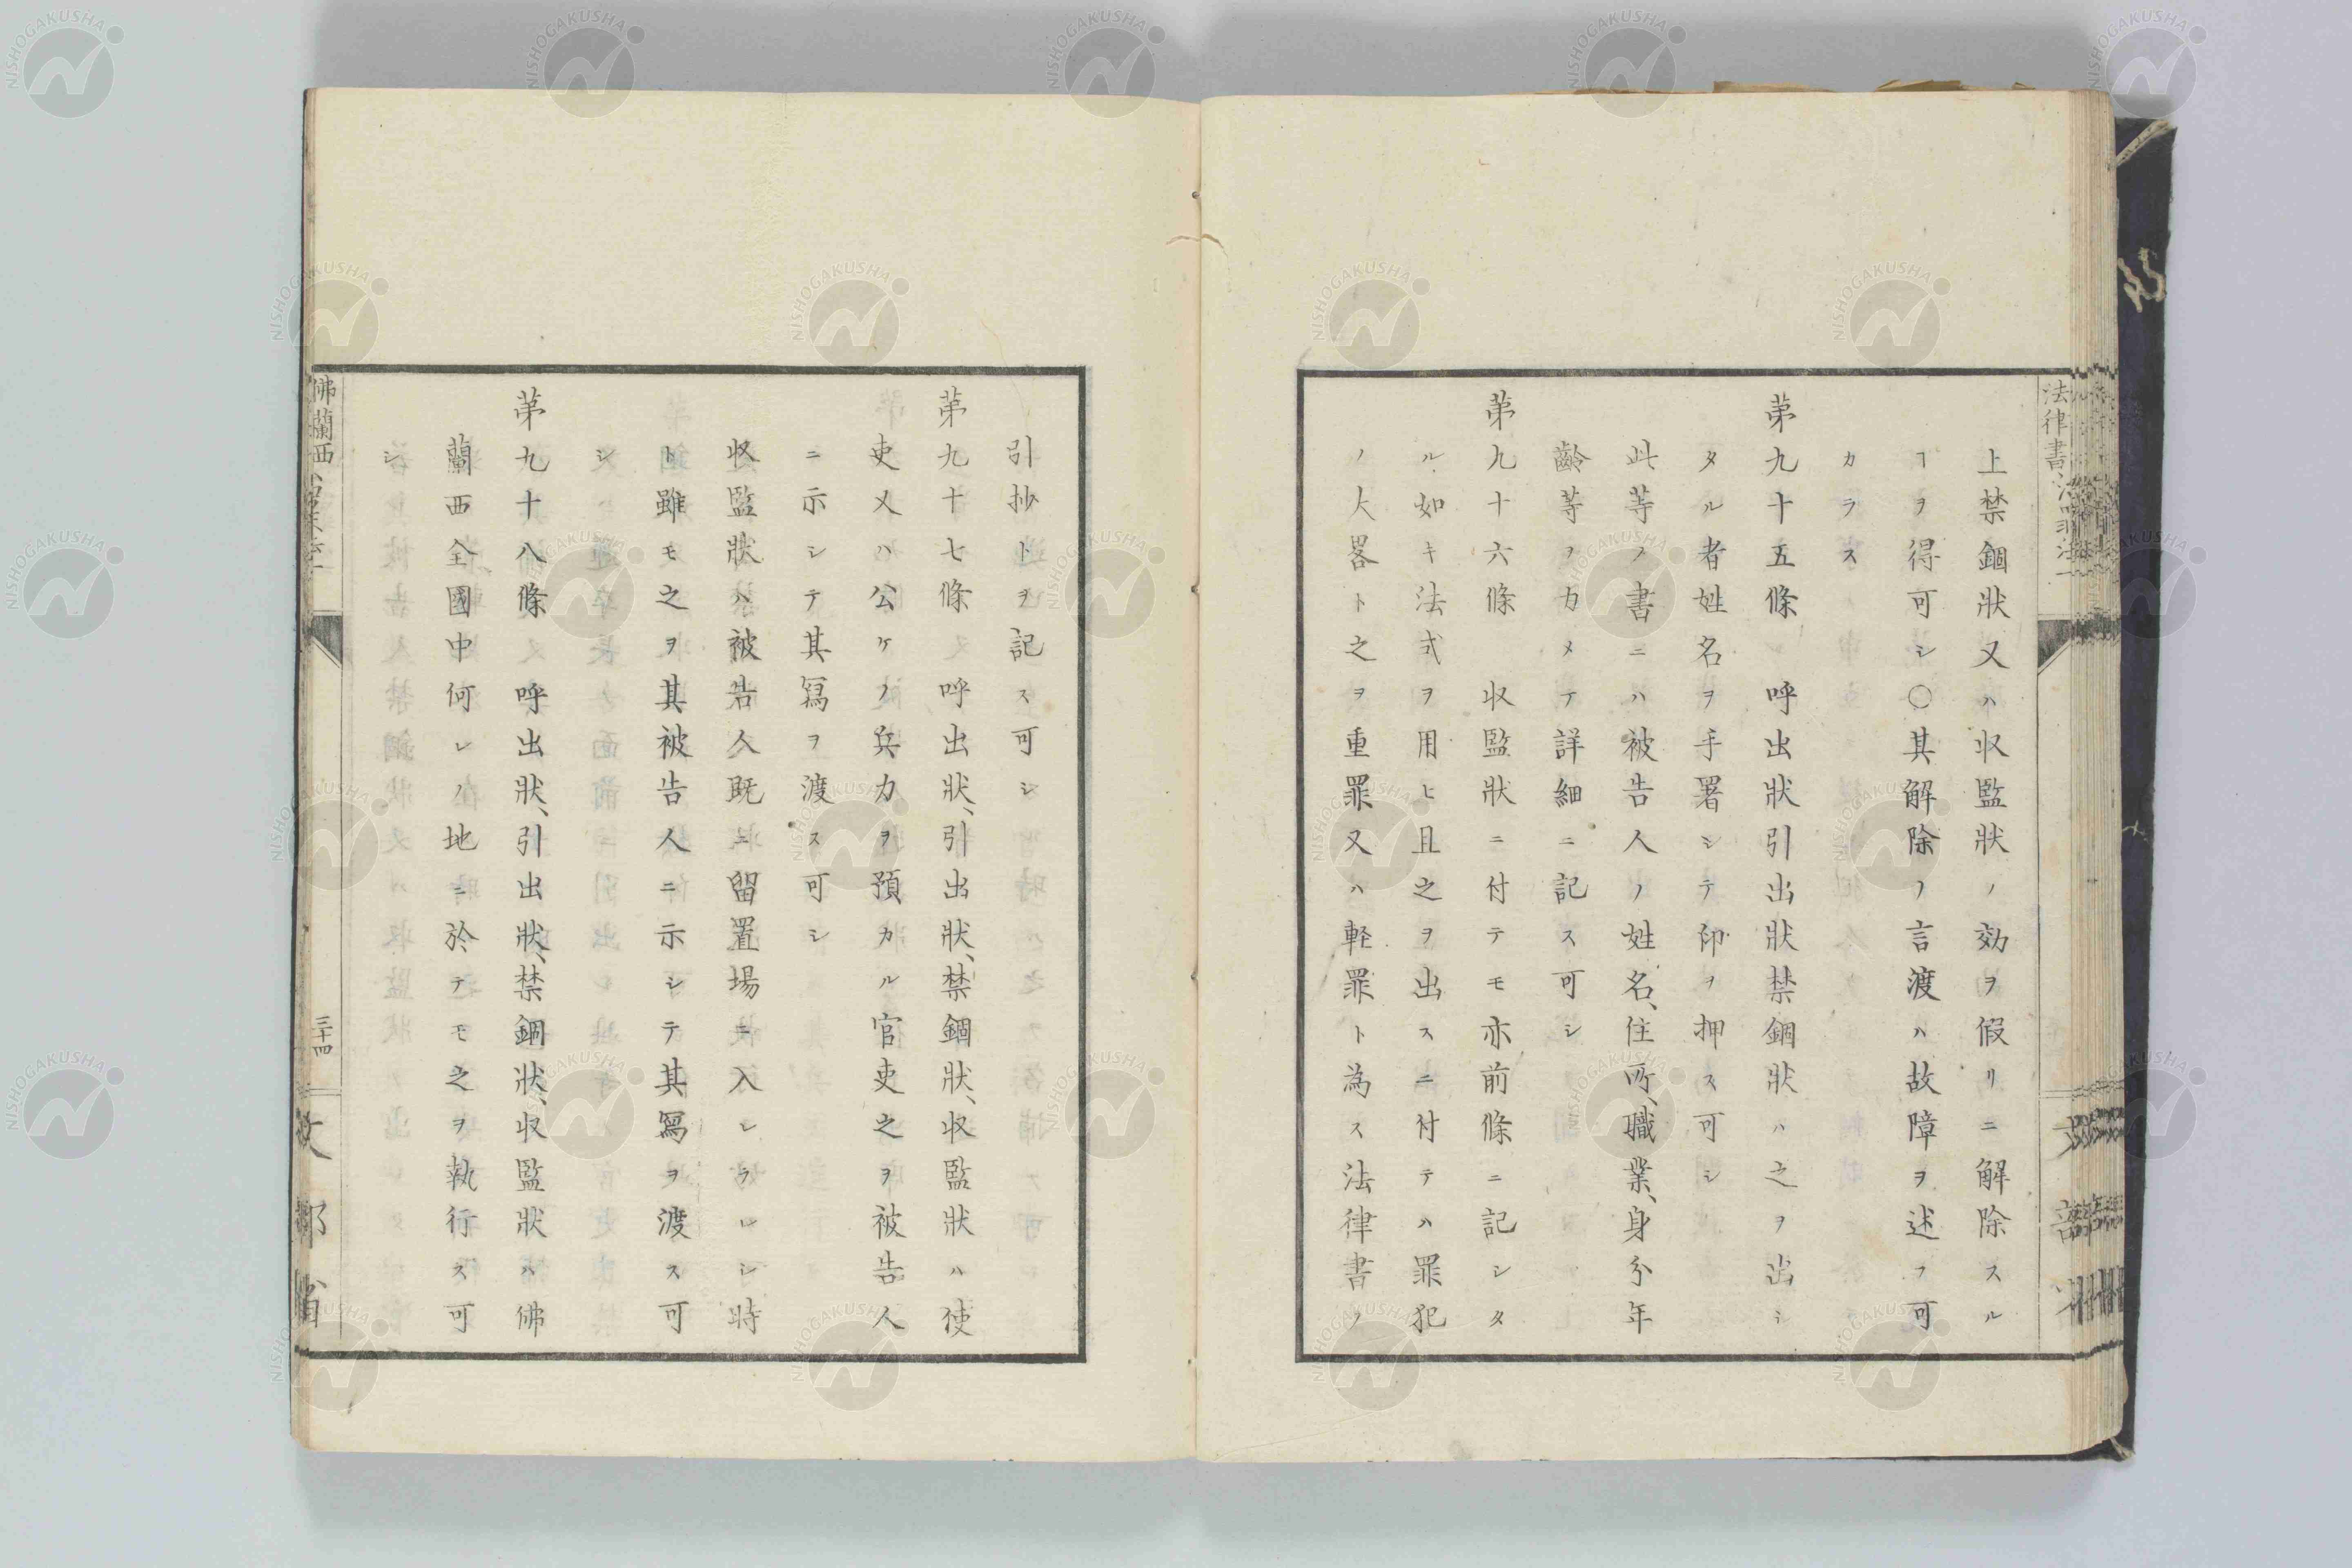 上禁錮狀又ハ収監狀ノ効ヲ假リニ解除スル
ヿヲ得可シ〇其解除ノ言渡ハ故障ヲ述フ可
カラス
第九十五條　呼出狀引出狀禁錮狀ハ之ヲ出シ
タル者姓名ヲ手署シテ印ヲ押ス可シ
此等ノ書ニハ被告人ノ姓名、住所、職業、身分年
齡等ヲカメテ詳細ニ記ス可シ
第九十六條　収監狀ニ付テモ亦前條ニ記シタ
ル如キ法式ヲ用ヒ且之ヲ出スニ付テハ罪犯
ノ大畧ト之ヲ重罪又ハ軽罪ト為ス法律書ノ
引抄トヲ記ス可シ
第九十七條　呼出狀、引出狀、禁錮狀、収監狀ハ使
吏又ハ公ケノ兵力ヲ預カル官吏之ヲ被告人
ニ示シテ其寫ヲ渡ス可シ
収監狀ハ被告人既ニ留置場ニ入レラレシ時
ト雖モ之ヲ其被告人ニ示シテ其寫ヲ渡ス可
シ
第九十八條　呼出狀、引出狀、禁錮狀、収監狀ハ佛
蘭西全國中何レノ地ニ於テモ之ヲ執行ス可
シ
佛蘭西
三十四
文部省
NISHOGAKUSHA